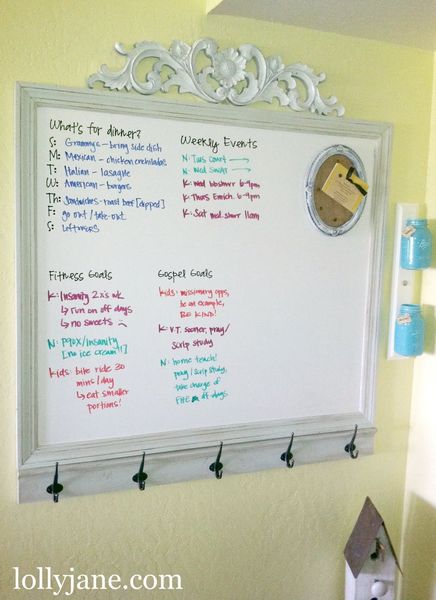 What's for dinner?
S: Grammys - bring side dish
M: Mexican - chicken enchiladas
T: Italian - lasagne
W: American - burgers
Th: Sandwiches - roast beef [dipped]
F: go out / take-out
S: leftovers
Weekly Events
N: Tues court →
N: Wed
K: Wed 6-9pm
K: Thurs Enrich. 6-9pm
K: Sat shwr 11am
Fitness Goals
K: Insanity 2x's wk
↳ run on off days
↳ no sweets
N: P90X/Insanity
[no ice cream!!]
kids: bike ride 30
mins/day
↳ eat smaller
portions!
Gospel Goals
kids: missionary opps,
be an example,
BE KIND!
K: V.T. sooner, pray/
scrip study
N: home teach!
pray/scrip study,
take charge of
FHE off days
lollyjane.com